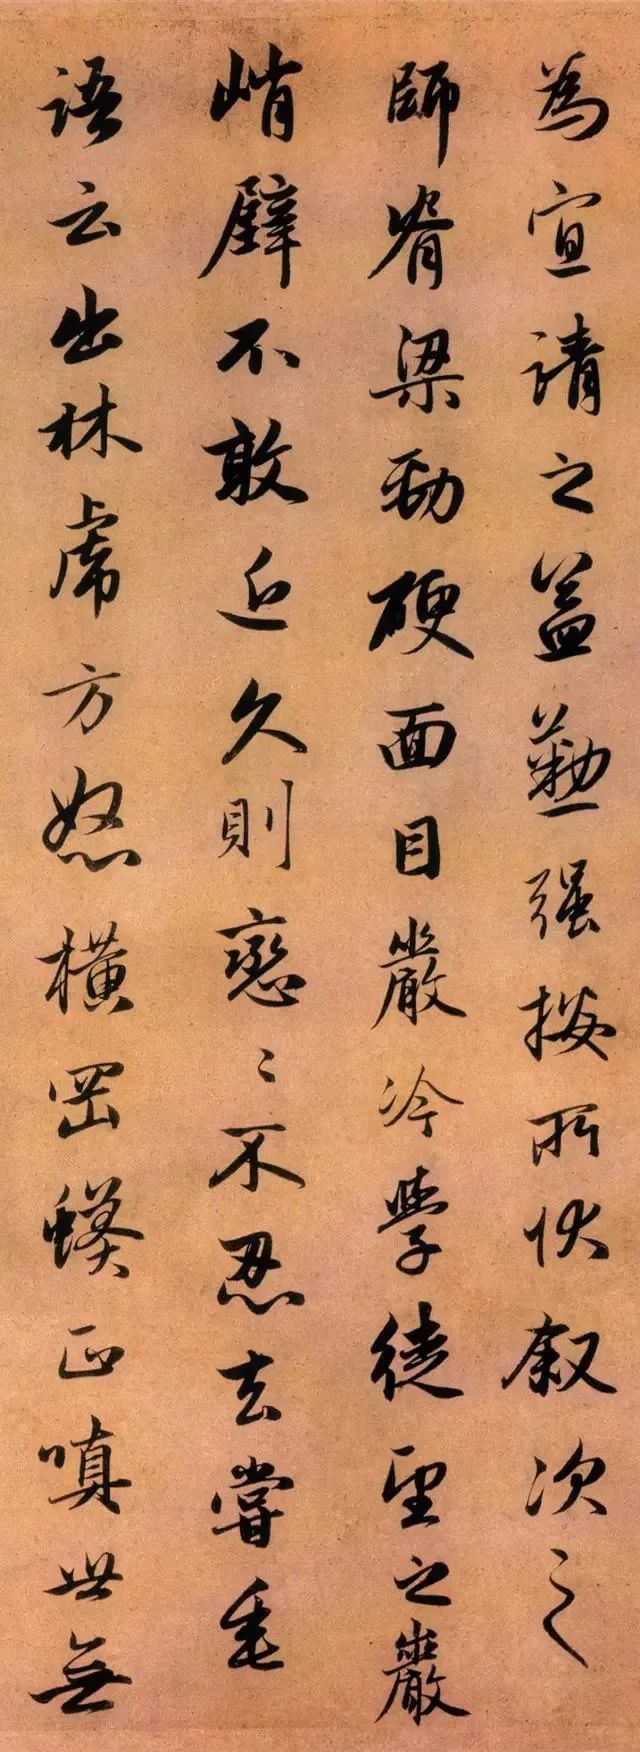 為宣請之益懃强按所状叙次之
師脊梁勁硬面目嚴冷學徒望之巖
峭壁不敢近久則戀〻不忍去嘗垂
語云出林虎方怒橫岡蟒正嗔世無